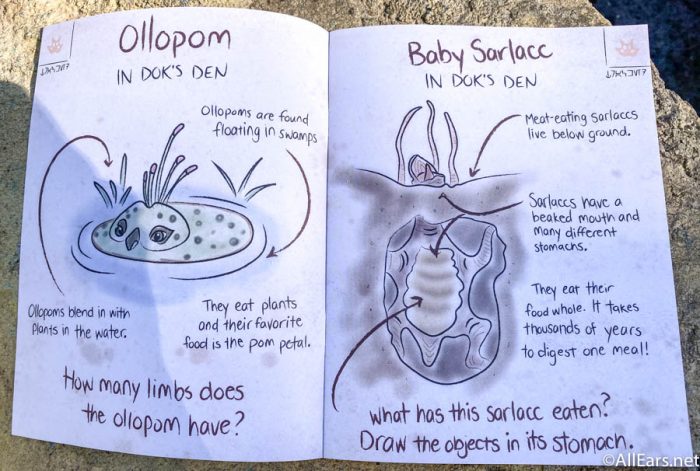 Ollopom
IN DOK'S DEN
Ollopoms are found
floating in swamps
Ollopoms blend in with
Plants in the water.
They eat plants
and their favorite
food is the pom petal.
How many limbs does
the ollopom have?
Baby Sarlacc
IN DOK'S DEN
Meat-eating Sarlaccs
live below ground.
Sarlaccs have a
beaked mouth and
many different
stomachs.
They eat their
food whole. It takes
thousands of years
to digest one meal!
What has this sarlacc eaten?
Draw the objects in its stomach.
©AllEars.net